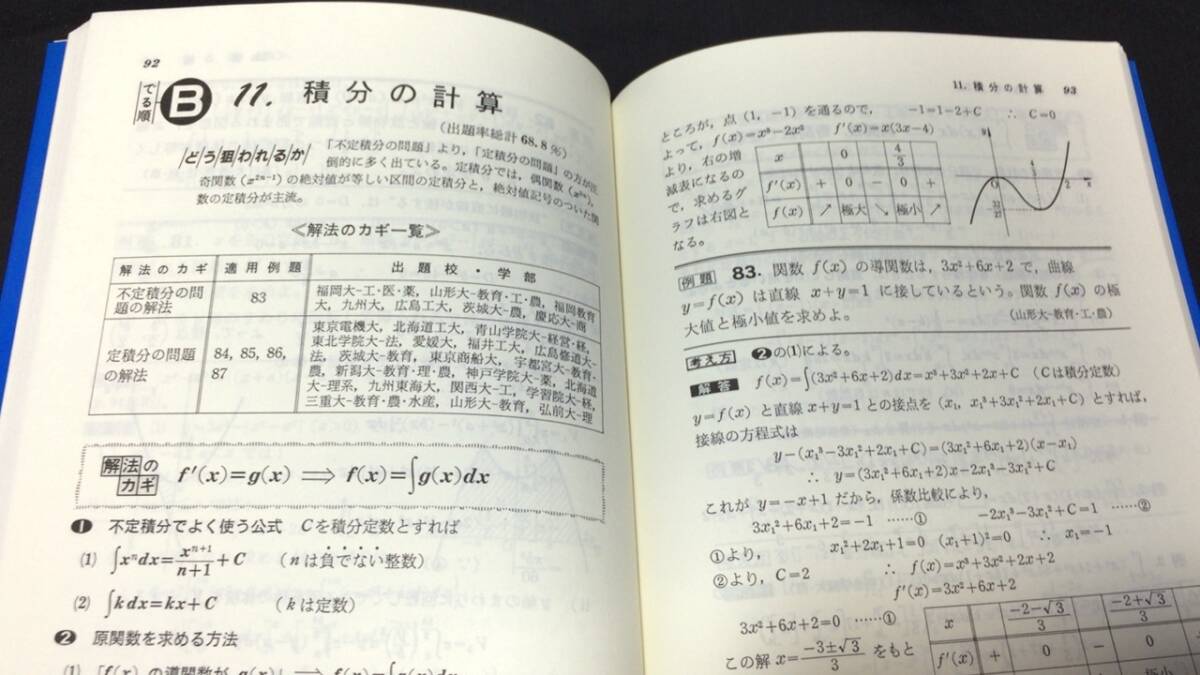 92
でる順
B 11. 積分の計算
(出題率総計 68.8%)
どう狙われるか
「不定積分の問題」より,「定積分の問題」の方が圧
倒的に多く出ている。定積分では, 偶関数(x²ⁿ),
奇関数(x²ⁿ⁻¹)の絶対値が等しい区間の定積分と, 絶対値記号のついた関
数の定積分が主流。
≪解法のカギ一覧≫
解法のカギ 適用例題 出題校・学部
不定積分の問題の解法 83 福岡大-工・医・薬, 山形大-教育・工・農, 福岡教育
大, 九州大, 広島工大, 茨城大-農, 慶応大-商
定積分の問題の解法 84, 85, 86, 87 東京電機大, 北海道工大, 青山学院大-経営・経,
東北学院大-法, 愛媛大, 福井工大, 広島修道大-
法, 茨城大-教育, 東京商船大, 宇都宮大-教育・
農, 新潟大-教育・理・農, 神戸学院大-薬, 北海道
大-理系, 九州東海大, 関西大-工, 学習院大-経,
三重大-教育・農・水産, 山形大-教育, 弘前大-理
解法のカギ f′(x)=g(x) ⟹ f(x)=∫g(x)dx
❶ 不定積分でよく使う公式 Cを積分定数とすれば
(1) ∫xⁿdx=xⁿ⁺¹/(n+1)+C (nは負でない整数)
(2) ∫k dx=kx+C (kは定数)
❷ 原関数を求める方法
(1) 「f(x)の導関数が g(x)」 ⟹ f(x)=∫g(x)dx
11. 積分の計算 93
ところが, 点(1, −1)を通るので, −1=1−2+C ∴ C=0
よって, f(x)=x³−2x² f′(x)=x(3x−4)
より, 右の増
減表になるの
で, 求めるグ
ラフは右図と
なる。
x 0 4/3
f′(x) + 0 − 0 +
f(x) ↗ 極大 ↘ 極小 ↗
y
0
2
x
例題 83. 関数 f(x) の導関数は, 3x²+6x+2 で, 曲線
y=f(x) は直線 x+y=1 に接しているという。関数 f(x) の極
大値と極小値を求めよ。 (山形大-教育・工・農)
考え方 ❷の(1)による。
解答 f(x)=∫(3x²+6x+2)dx=x³+3x²+2x+C (Cは積分定数)
y=f(x) と直線 x+y=1 との接点を (x₁, x₁³+3x₁²+2x₁+C) とすれば,
接線の方程式は
y−(x₁³−3x₁²+2x₁+C)=(3x₁²+6x₁+2)(x−x₁)
∴ y=(3x₁²+6x₁+2)x−2x₁³−3x₁²+C
これが y=−x+1 だから, 係数比較により,
3x₁²+6x₁+2=−1 ……① −2x₁³−3x₁²+C=1 ……②
①より, x₁²+2x₁+1=0 (x₁+1)²=0 ∴ x₁=−1
②より, C=2 ∴ f(x)=x³+3x²+2x+2
f′(x)=3x²+6x+2
3x²+6x+2=0 ……①
この解 x=(−3±√3)/3 をもと
x (−2−√3)/3 (−2+√3)/3
f′(x) + 0 − 0
極小